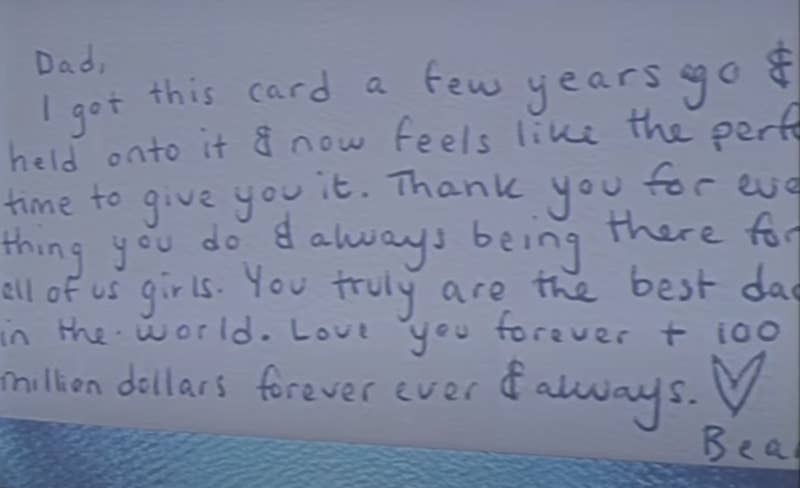 Dad,
I got this card a few years ago &
held onto it & now feels like the perfe
time to give you it. Thank you for eve
thing you do & always being there for
all of us girls. You truly are the best dad
in the world. Love you forever + 100
million dollars forever ever & always. ♡